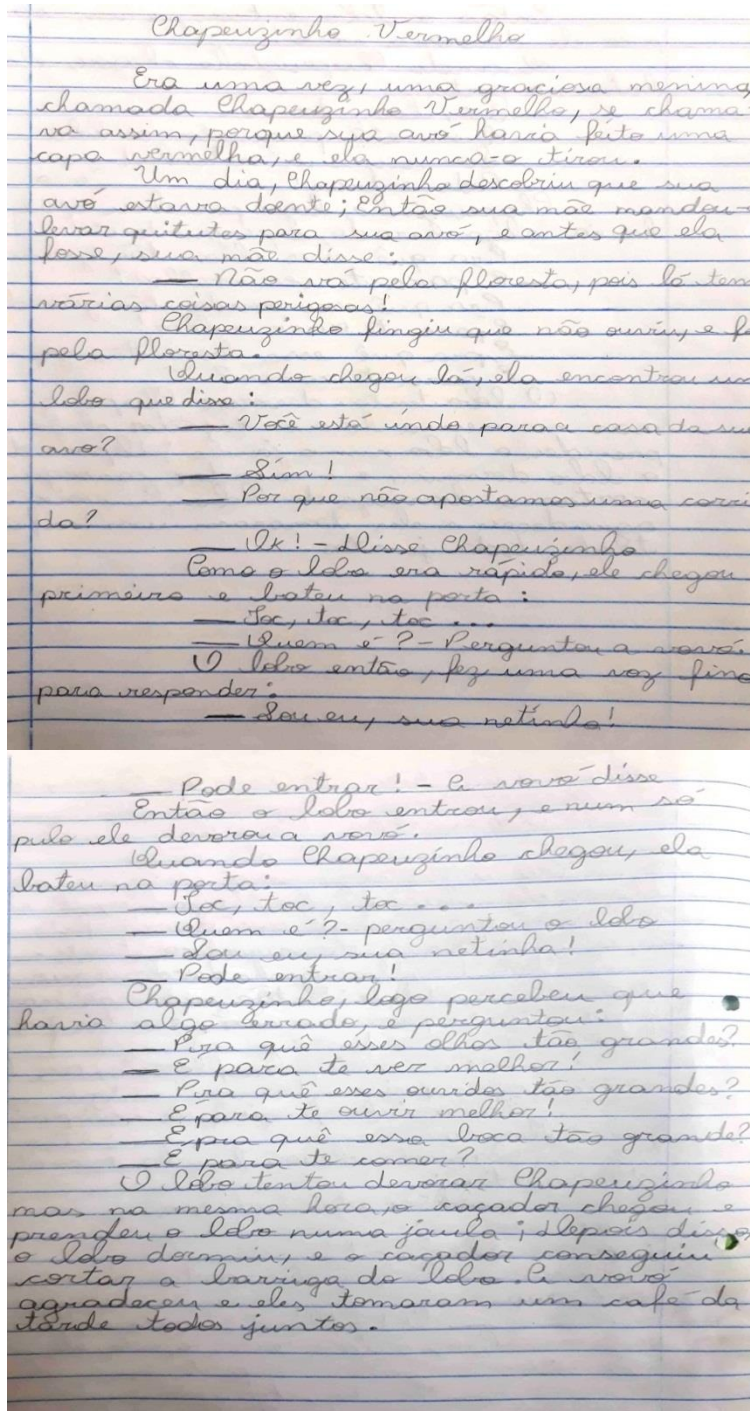 Chapeuzinho Vermelho
Era uma vez, uma graciosa menina
chamada Chapeuzinho Vermelho, se chama
va assim, porque sua avó havia feito uma
capa vermelha, e ela nunca-o tirou.
Um dia, Chapeuzinho descobriu que sua
avó estava doente; Então sua mãe mandou-
levar quitutes para sua avó, e antes que ela
fosse, sua mãe disse:
— Não vá pela floresta, pois lá tem
várias coisas perigosas!
Chapeuzinho fingiu que não ouviu, e f
pela floresta.
Quando chegou lá, ela encontrou um
lobo que disse:
— Você está indo para a casa da su
avó?
— Sim!
— Por que não apostamos uma corri
da?
— Ok! - Disse Chapeuzinho
Como o lobo era rápido, ele chegou
primeiro e bateu na porta:
— Toc, toc, toc...
— Quem é? - Perguntou a vovó.
O lobo então, fez uma voz fina
para responder:
— Sou eu, sua netinha!
— Pode entrar! - A vovó disse
Então o lobo entrou, e num só
pulo ele devorou a vovó.
Quando Chapeuzinho chegou, ela
bateu na porta:
— Toc, toc, toc...
— Quem é? - perguntou o lobo
— Sou eu, sua netinha!
— Pode entrar!
Chapeuzinho, logo percebeu que
havia algo errado, e perguntou:
— Pra quê esses olhos tão grandes?
— É para te ver melhor!
— Pra quê esses ouvidos tão grandes?
— É para te ouvir melhor!
— E pra quê essa boca tão grande?
— É para te comer?
O lobo tentou devorar Chapeuzinho
mas na mesma hora, o caçador chegou e
prendeu o lobo numa jaula; Depois disso
o lobo dormiu, e o caçador conseguiu
cortar a barriga do lobo. A vovó
agradeceu e eles tomaram um café da
tarde todos juntos.